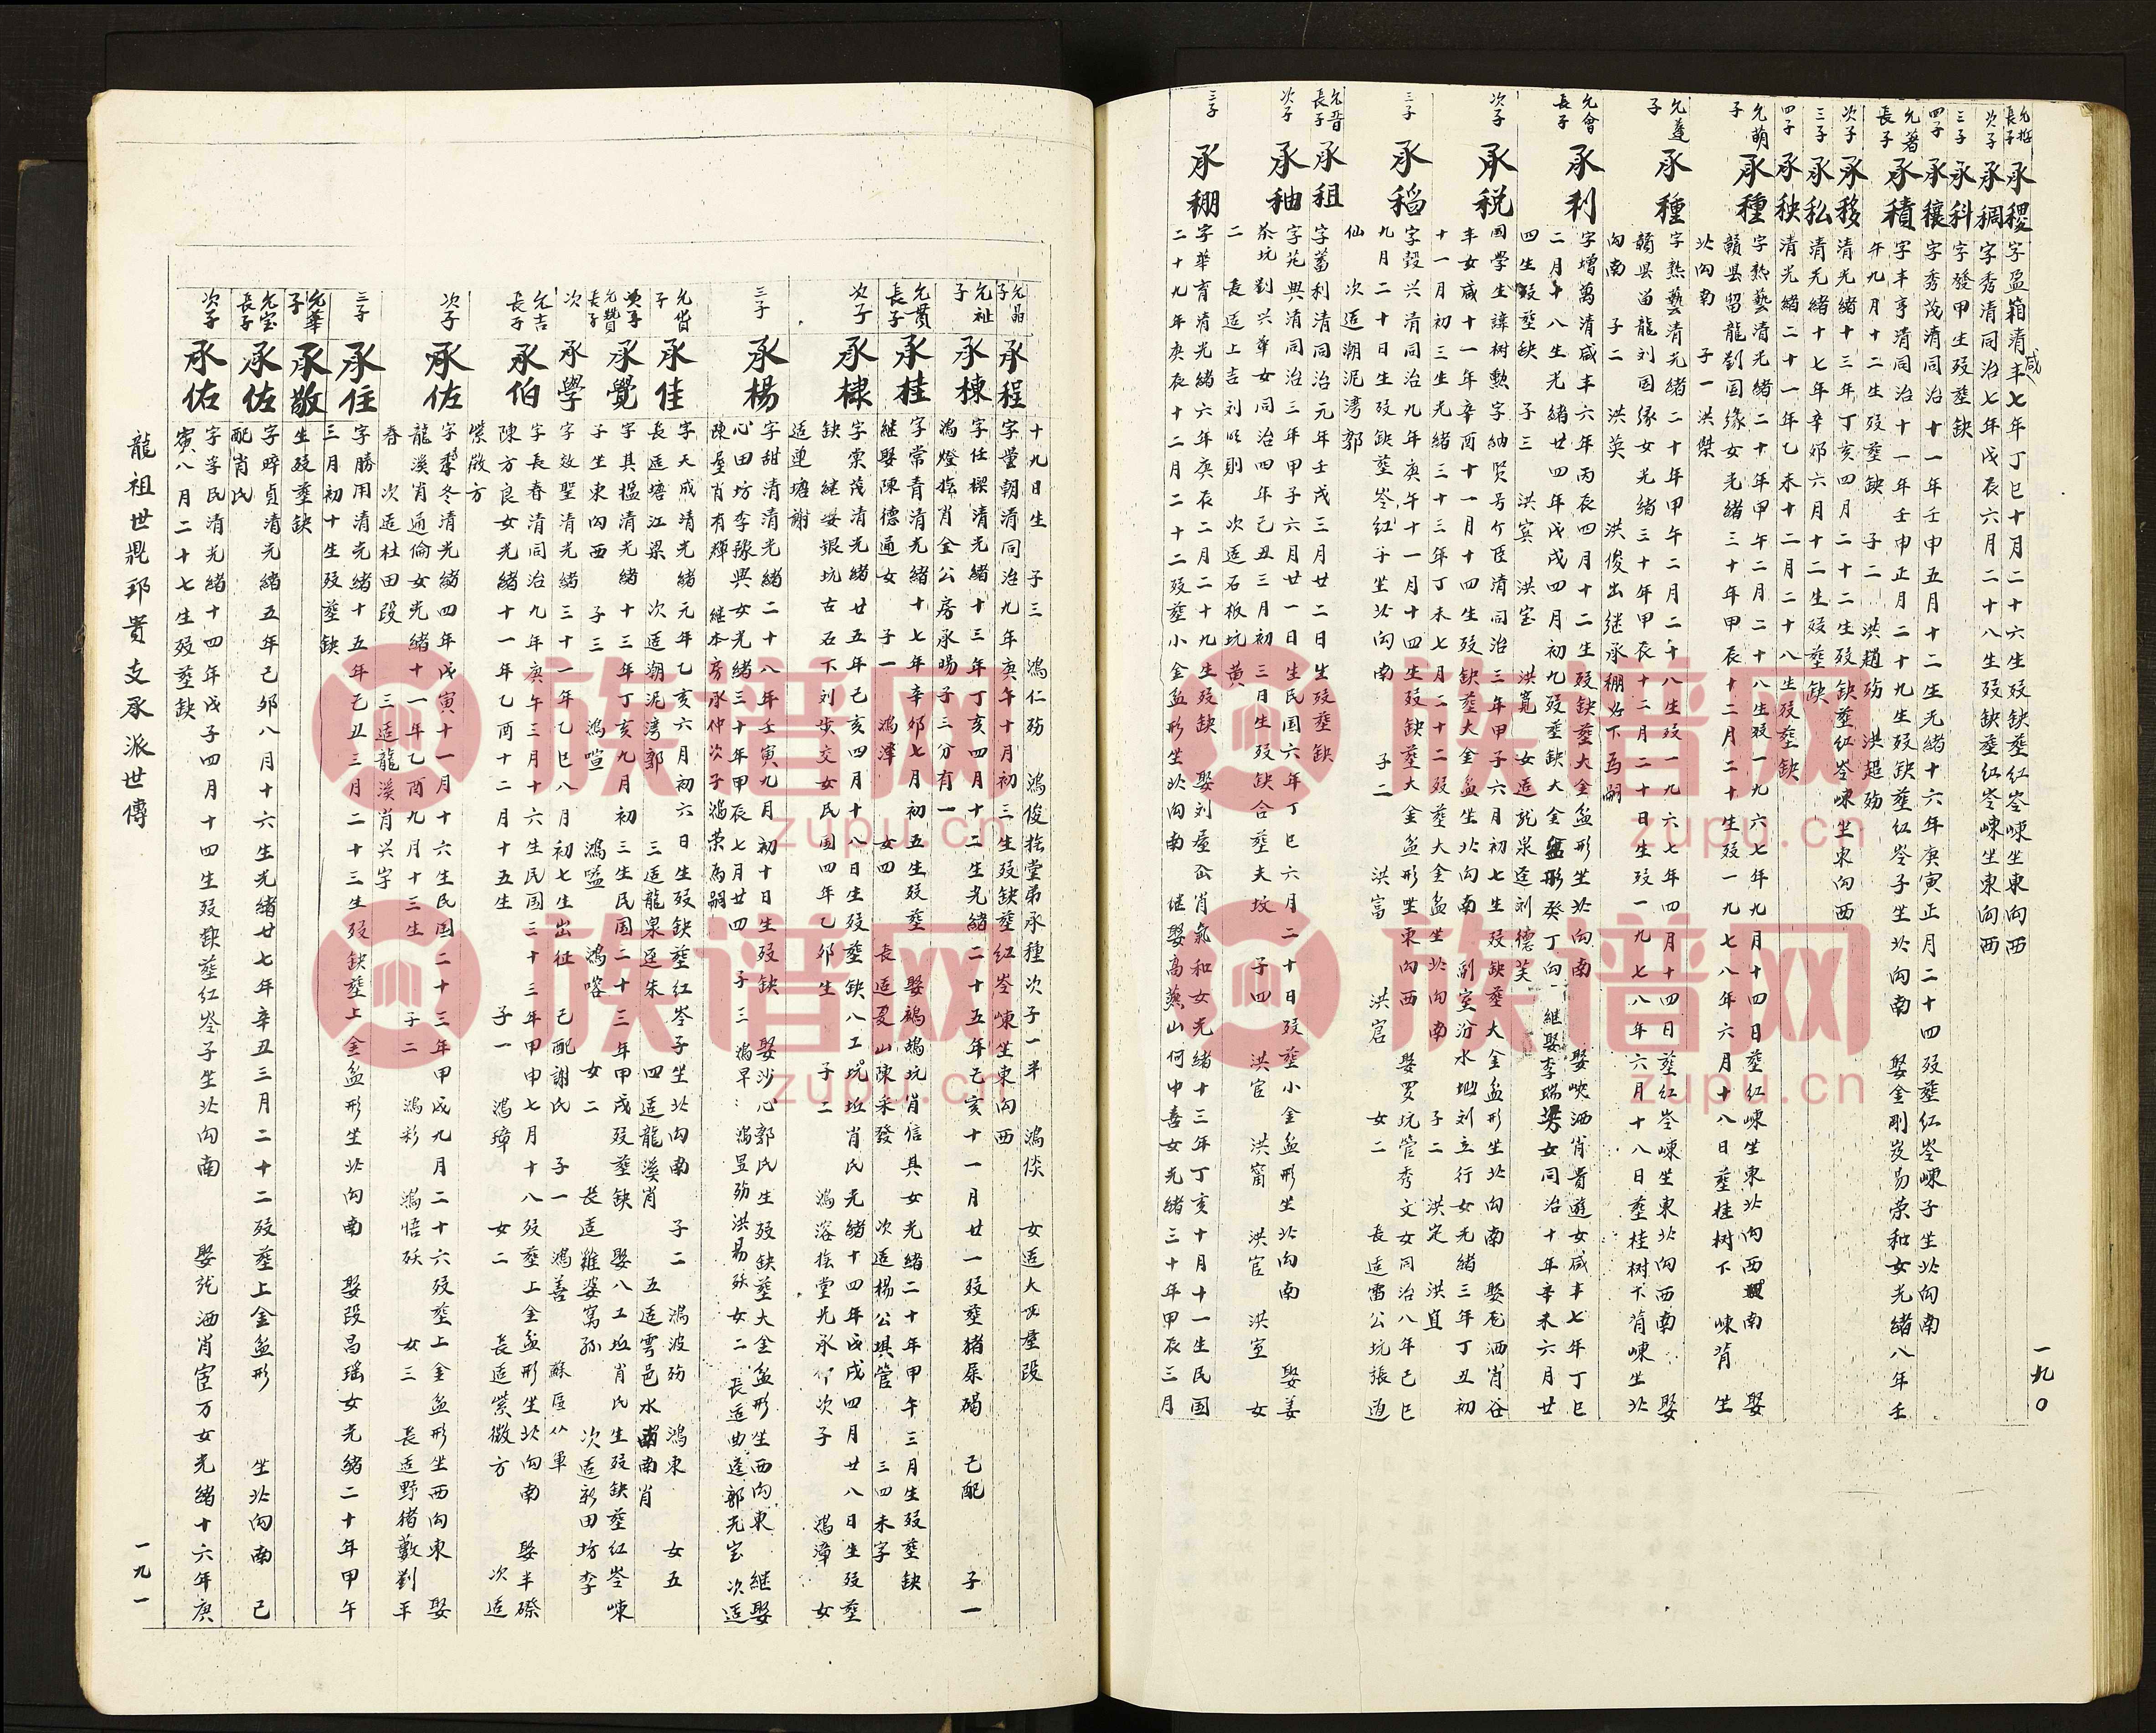 一九〇
長子 承稷 字盈箱清咸丰七年丁巳十月二十六生殁缺塟红岑崠坐東向西
次子 承稠 字秀清同治七年戊辰六月二十八生殁缺塟红岑崠坐東向西
三子 承科 字發甲生殁塟缺
四子 承穰 字秀茂清同治十一年壬申五月十二生光緒十六年庚寅正月二十四殁塟红岑崠子坐北向南
允著長子 承積 字丰亨清同治十一年壬申正月二十九生殁缺塟红岑子坐北向南 娶金剛岌易荣和女光緒八年壬
午九月十二生殁塟缺 子二 洪趙殇 洪超殇
次子 承移 清光緒十三年丁亥四月二十二生殁缺塟红岑崠坐東向西
三子 承私 清光緒十七年辛卯六月十二生殁塟缺
四子 承秧 清光緒二十一年乙未十二月二十八生殁塟缺
允萌子 承種 字熱藝清光緒二十年甲午二月二十八生殁一九六七年九月十四日塟红崠坐東北向西南 娶
贛县留龍劉国缘女光緒三十年甲辰十二月二十生殁一九七八年六月十八日塟桂树下崠背 坐
北向南 子一 洪傑
允蓬子 承種 字熱藝清光緒二十年甲午二月二十八生殁一九六七年四月十四日塟红岑崠坐東北向西南 娶
贛县留龍刘国缘女光緒三十年甲辰十二月二十日生殁一九七八年六月十八日塟桂树下背崠坐北
向南 子二 洪英 洪俊出继承稝好下為嗣
允會長子 承利 字增萬清咸丰六年丙辰四月十二生殁缺塟大金盆形坐北向南 娶峡洒肖貴遊女咸丰七年丁巳
二月十八生光緒廿四年戊戌四月初九殁塟缺大金盆形癸丁向 継娶李瑞芳女同治十年辛未六月廿
四生殁塟缺 子三 洪賓 洪宝 洪寬 女适龍泉逕刘德芙
次子 承税 国学生諱树勲字納贤号介臣清同治三年甲子六月初七生殁缺塟大金盆形坐北向南 娶庬洒肖谷
丰女咸十一年辛酉十一月十四生殁缺塟大金盆坐北向南副室汾水坳刘立行女光緒三年丁丑初
十一月初三生光緒三十三年丁未七月二十二殁塟大金盆坐北向南 子二 洪定 洪宜
三子 承稻 字穀兴清同治九年庚午十一月十四生殁缺塟大金盆形坐東向西 娶罗坑管秀文女同治八年己巳
九月二十日生殁缺塟岑红子坐北向南 子二 洪富 洪宕 女二 長适雷公坑張迺
仙 次适潮泥湾郭
允晋長子 承租 字蓄利清同治元年壬戌三月廿二日生殁塟缺
次子 承秞 字苑興清同治三年甲子六月廿一日生民国六年丁巳六月二十日殁塟小金盆形坐北向南 娶姜
茶坑劉兴華女同治四年己丑三月初三日生殁缺合塟夫坟 子四 洪宦 洪甯 洪宧 洪室 女
二 長适上吉刘以則 次适石板坑黄
三子 承稝 字華育清光緒六年庚辰二月二十九生殁缺 娶刘屋岙肖氣和女光緒十三年丁亥十月十一生民国
二十九年庚辰十二月二十二殁塟小金盆形坐北向南 继娶高燕山何中喜女光緒三十年甲辰三月
十九日生 子三 鴻仁殇 鴻俊㧹堂弟承種次子一半 鴻倓 女适大丕屋段
允晶子 承程 字萤朝清同治九年庚午十月初三生殁缺塟红岑崠坐東向西
允祉子 承棟 字任樑清光緒十三年丁亥四月十二生光緒二十五年己亥十一月廿一殁塟猪屎碣 已配 子一
鴻燈㧹肖金公房承暘子三分有一
允贯長子 承桂 字常青清光緒十七年辛卯七月初五生殁塟 娶鵶鴣坑肖信具女光緒二十年甲午三月生殁塟缺
継娶陳德通女 子一 鴻澤 女四 長适夏山陳采發 次适楊公堌管 三四未字
次子 承棣 字棠茂清光緒廿五年己亥四月十八日生殁塟缺八工坑坵肖氏光緒十四年戊戌四月廿八日生殁塟
缺 继娶银坑古石下刘蛍交女民国四年乙卯生 子二 鴻溶㧹堂兄承伃次子 鴻漳 女
适連塘謝
三子 承楊 字甜清清光緒二十八年壬寅九月初十日生殁缺 娶沙心郭氏生殁缺塟大金盆形坐西向東 継娶
心田坊李豫興女光緒三十年甲辰七月廿四 子三 鴻早 鴻昱殇 洪易殀 女二 長适曲逢郭光宝 次适
陳屋肖有輝 継本房承仲次子鴻荣為嗣
允偕子 承佳 字天成清光緒元年乙亥六月初六日生殁缺塟红岑子坐北向南 子二 鴻波殇 鴻東 女五
長适塘江梁 次适潮泥湾郭 三适龍泉逕朱 四适龍溪肖 五适雩邑水南肖
允贊長子 承覺 字其榅清光緒十三年丁亥九月初三生民国二十三年甲戌殁塟缺 娶八工坵肖氏生殁缺塟红岑崠
子坐東向西 子三 鴻喧 鴻嗌 鴻喀 女二 長适雞婆窝孫 次适新田坊李
次 承學 字效聖清光緒三十一年乙巳八月初七生出征 己配謝氏 子一 鴻善 蘇區从軍
允吉長子 承伯 字長春清同治九年庚午三月十六生民国三十三年甲申七月十八殁塟上金盆形坐北向南 娶半磜
陳方良女光緒十一年乙酉十二月十五生 子一 鴻璋 女二 長适紫微方 次适
紫微方
次子 承佐 字黎冬清光緒四年戊寅十一月十六生民国二十三年甲戌九月二十六殁塟上金盆形坐西向東 娶
龍溪肖通倫女光緒十一年乙酉九月十三生 子二 鴻彩 鴻悟殀 女三 長适野猪藪劉平
春 次适杜田段 三适龍溪肖兴字
三子 承住 字勝用清光緒十五年己丑三月二十三生殁缺塟上金盆形坐北向南 娶段昌瑶女光緒二十年甲午
三月初十生殁塟缺
允華子 承敬 生殁塟缺
允宝長子 承佐 字晬貞清光緒五年己卯八月十六生光緒廿七年辛丑三月二十二殁塟上金盆形 坐北向南 已
配肖氏
次子 承佑 字孚民清光緒十四年戊子四月十四生殁缺塟红岑子坐北向南 娶龍洒肖宦万女光緒十六年庚
寅八月二十七生殁塟缺
龍祖世鼎邦貴支承派世傳
一九一
族谱网
zupu.cn
族谱网
zupu.cn
族谱网
zupu.cn
族谱网
zupu.cn